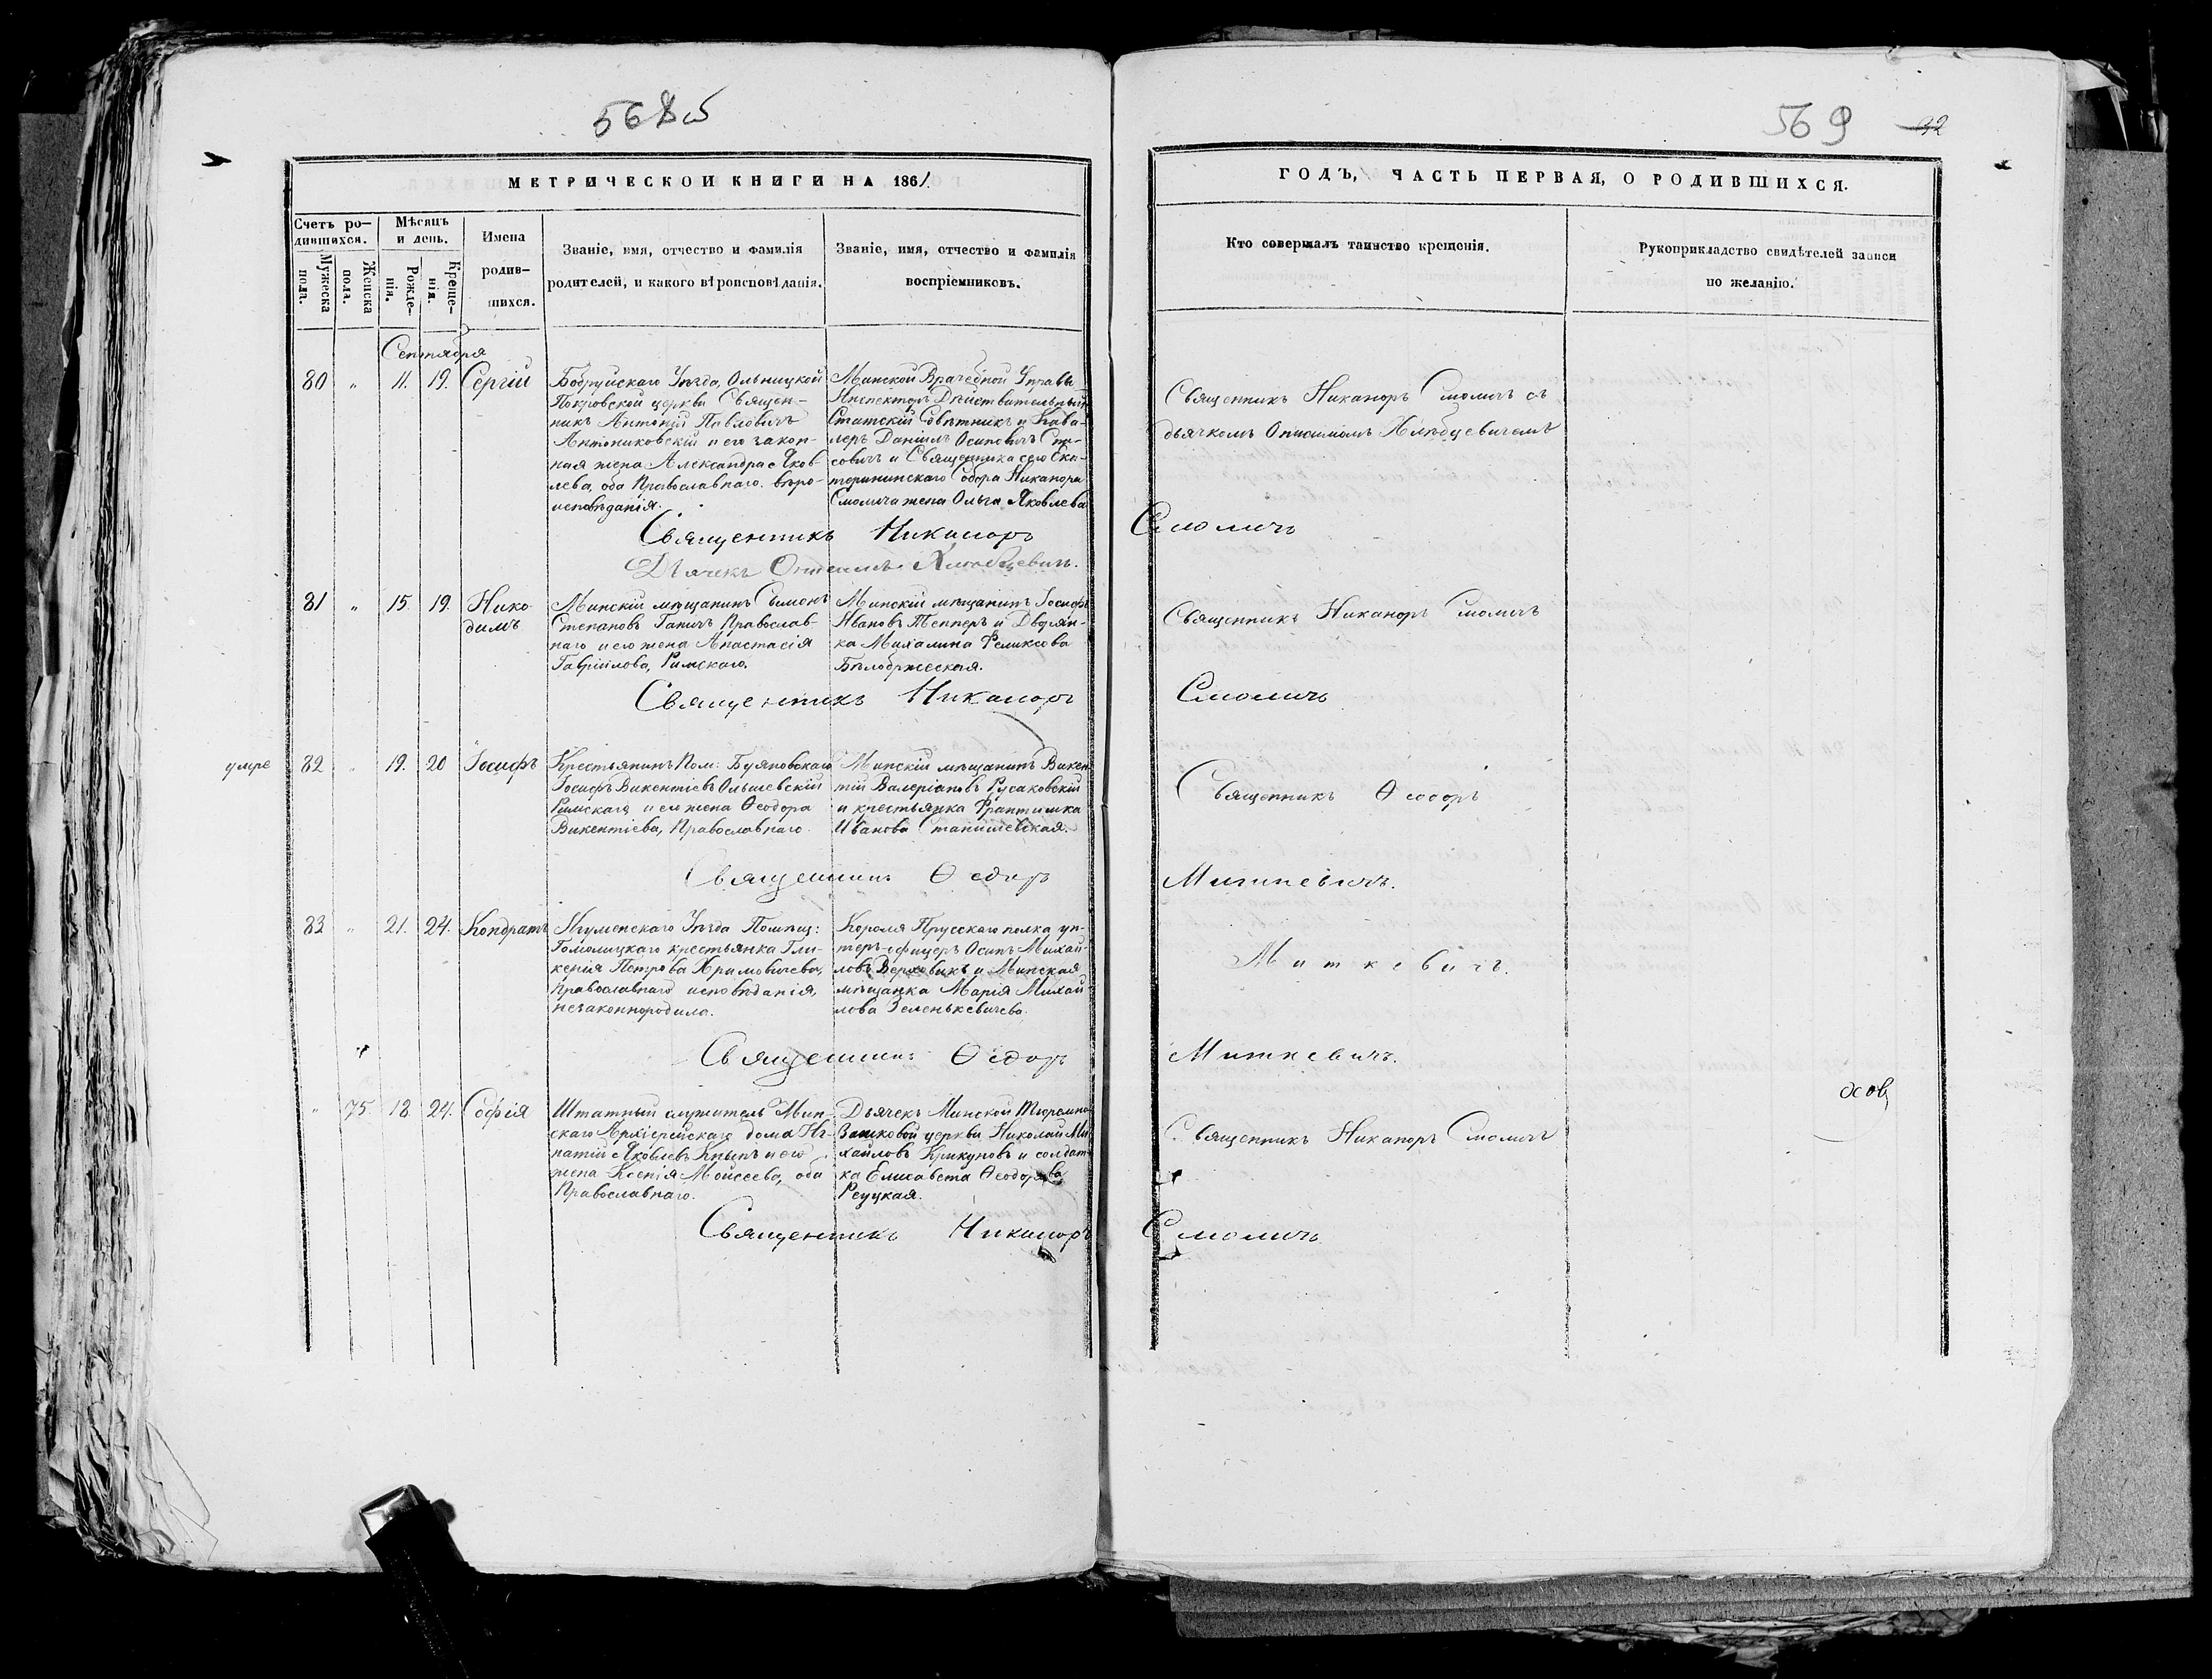 569
92
МЕТРИЧЕСКОЙ КНИГИ НА 1861.
ГОДЪ, ЧАСТЬ ПЕРВАЯ, О РОДИВШИХСЯ.
Счетъ ро-
дившихся.
Мужеска
пола.
Женска
пола.
Мѣсяцъ
и день.
Рожде-
нія.
Креще-
нія.
Имена
родив-
шихся.
Званіе, имя, отчество и фамилія
родителей, и какого вѣроисповѣданія.
Званіе, имя, отчество и фамилія
воспріемниковъ.
Кто совершалъ таинство крещенія.
Рукоприкладство свидѣтелей записи
по желанію.
Сентября
80 " 11. 19. Сергій
Бобруйскаго Уѣзда, Ольницкой
Покровской церкви Священ-
никъ Антоній Павловичъ
и его закон-
ная жена Александра Яков-
лева, оба Православнаго вѣро-
исповѣданія.
Минской Врачебной Управы
Инспекторъ Дѣйствительный
Статскій Совѣтникъ и Кава-
леръ Даніилъ Осиповичъ
и Священника сего Ека-
терининскаго Собора Никанора
Смолича жена Ольга Яковлева
Священникъ Никаноръ Смоличъ съ
дьячкомъ
Священникъ Никаноръ Смоличъ
Дьячекъ
81 " 15. 19. Нико-
димъ
Минскій мѣщанинъ Сѵмонъ
Степановъ Ганичъ Православ-
наго и его жена Анастасія
Гавріилова, Римскаго.
Минскій мѣщанинъ Іосифъ
Ивановъ Тепперъ и Дворян-
ка Михалина Феликсова
Бѣлобржеская.
Священникъ Никаноръ Смоличъ
Священникъ Никаноръ Смоличъ
умре 82 " 19. 20 Іосифъ
Крестьянинъ Пом: Буяновскаго
Іосифъ Викентіевъ Ольшевскій
Римскаго, и его жена Ѳеодора
Викентіева, Православнаго.
Минскій мѣщанинъ Викен-
тій Валеріановъ Русаковскій
и крестьянка Франтишка
Иванова Станишевская.
Священникъ Ѳеодоръ
Священникъ Ѳедоръ Миткевичъ.
83 " 21. 24. Кондратъ
Игуменскаго Уѣзда Помѣщ:
крестьянка Гли-
керія Петрова Храмовичева,
Православнаго исповѣданія,
незаконнородила.
Короля Прусскаго полка ун-
теръ-офицеръ Осипъ Михай-
ловъ Верховикъ и Минская
мѣщанка Марія Михай-
лова Зеленькевичева.
Миткевичъ.
Священникъ Ѳедоръ Миткевичъ.
" 75. 18. 24. Софія
Штатный служитель Мин-
скаго Архіерейскаго дома Иг-
натій Яковлевъ Кныпъ и его
жена Ксенія Моисеева, оба
Православнаго.
Дьячекъ Минской Тюремно-
Замковой церкви Николай Ми-
хайловъ Крикуновъ и солдат-
ка Елисавета Ѳеодорова
Рецукая.
Священникъ Никаноръ Смоличъ
Священникъ Никаноръ Смоличъ